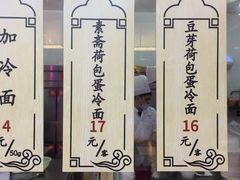 加冷面
4
元/50g
素斋荷包蛋冷面
17
元/客
豆芽荷包蛋冷面
16
元/客